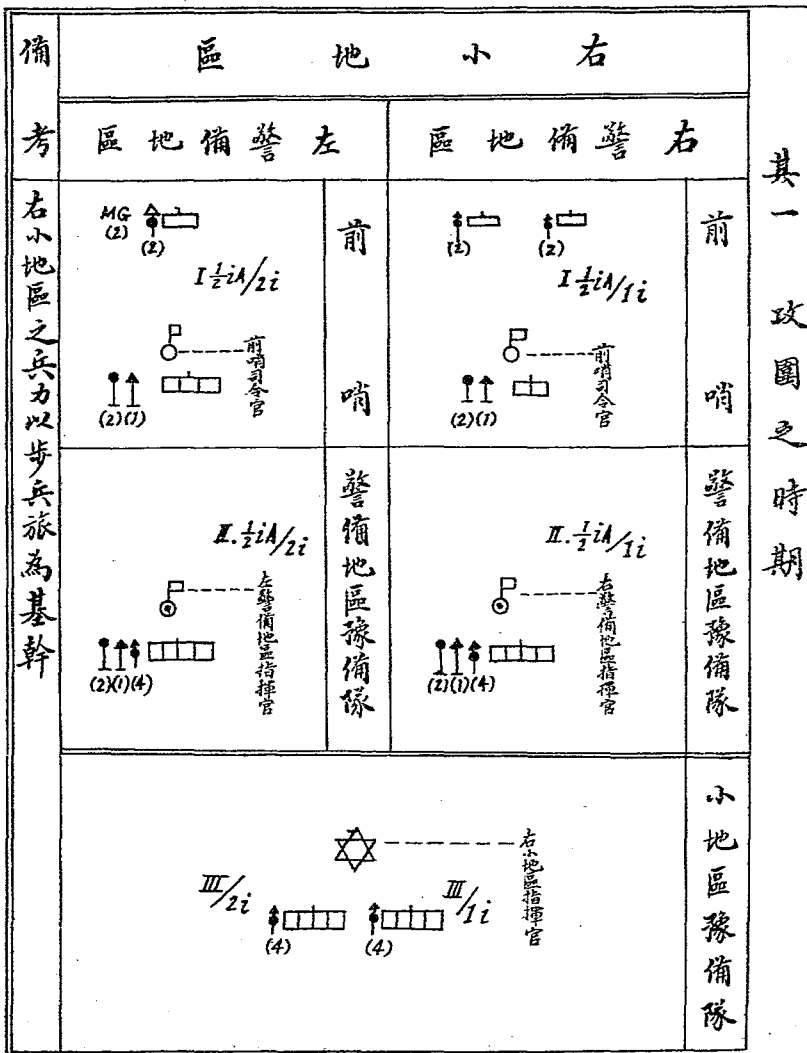 其一　攻圍之時期
右小地區
右警備地區
前哨
(2)
(2)
I ½iA/1i
前哨司令官
(2)(1)
警備地區豫備隊
II. ½iA/1i
右警備地區指揮官
(2)(1)(4)
左警備地區
前哨
MG
(2)
(2)
I ½iA/2i
前哨司令官
(2)(1)
警備地區豫備隊
II. ½iA/2i
左警備地區指揮官
(2)(1)(4)
小地區豫備隊
右小地區指揮官
III/1i
(4)
III/2i
(4)
備考
右小地區之兵力以步兵旅為基幹